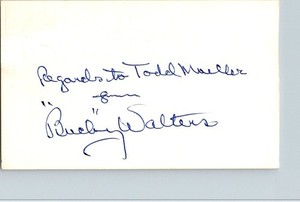 Regards to Todd Mueller
from
"Bucky" Walters